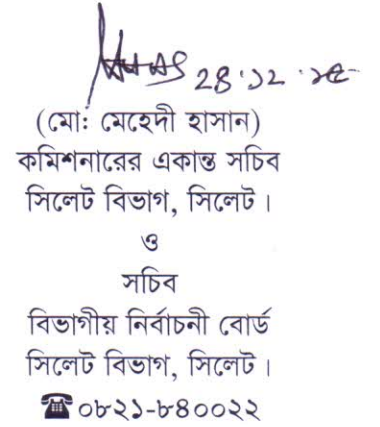 ২৪.১২.১৫
(মো: মেহেদী হাসান)
কমিশনারের একান্ত সচিব
সিলেট বিভাগ, সিলেট।
ও
সচিব
বিভাগীয় নির্বাচনী বোর্ড
সিলেট বিভাগ, সিলেট।
☎০৮২১-৮৪০০২২